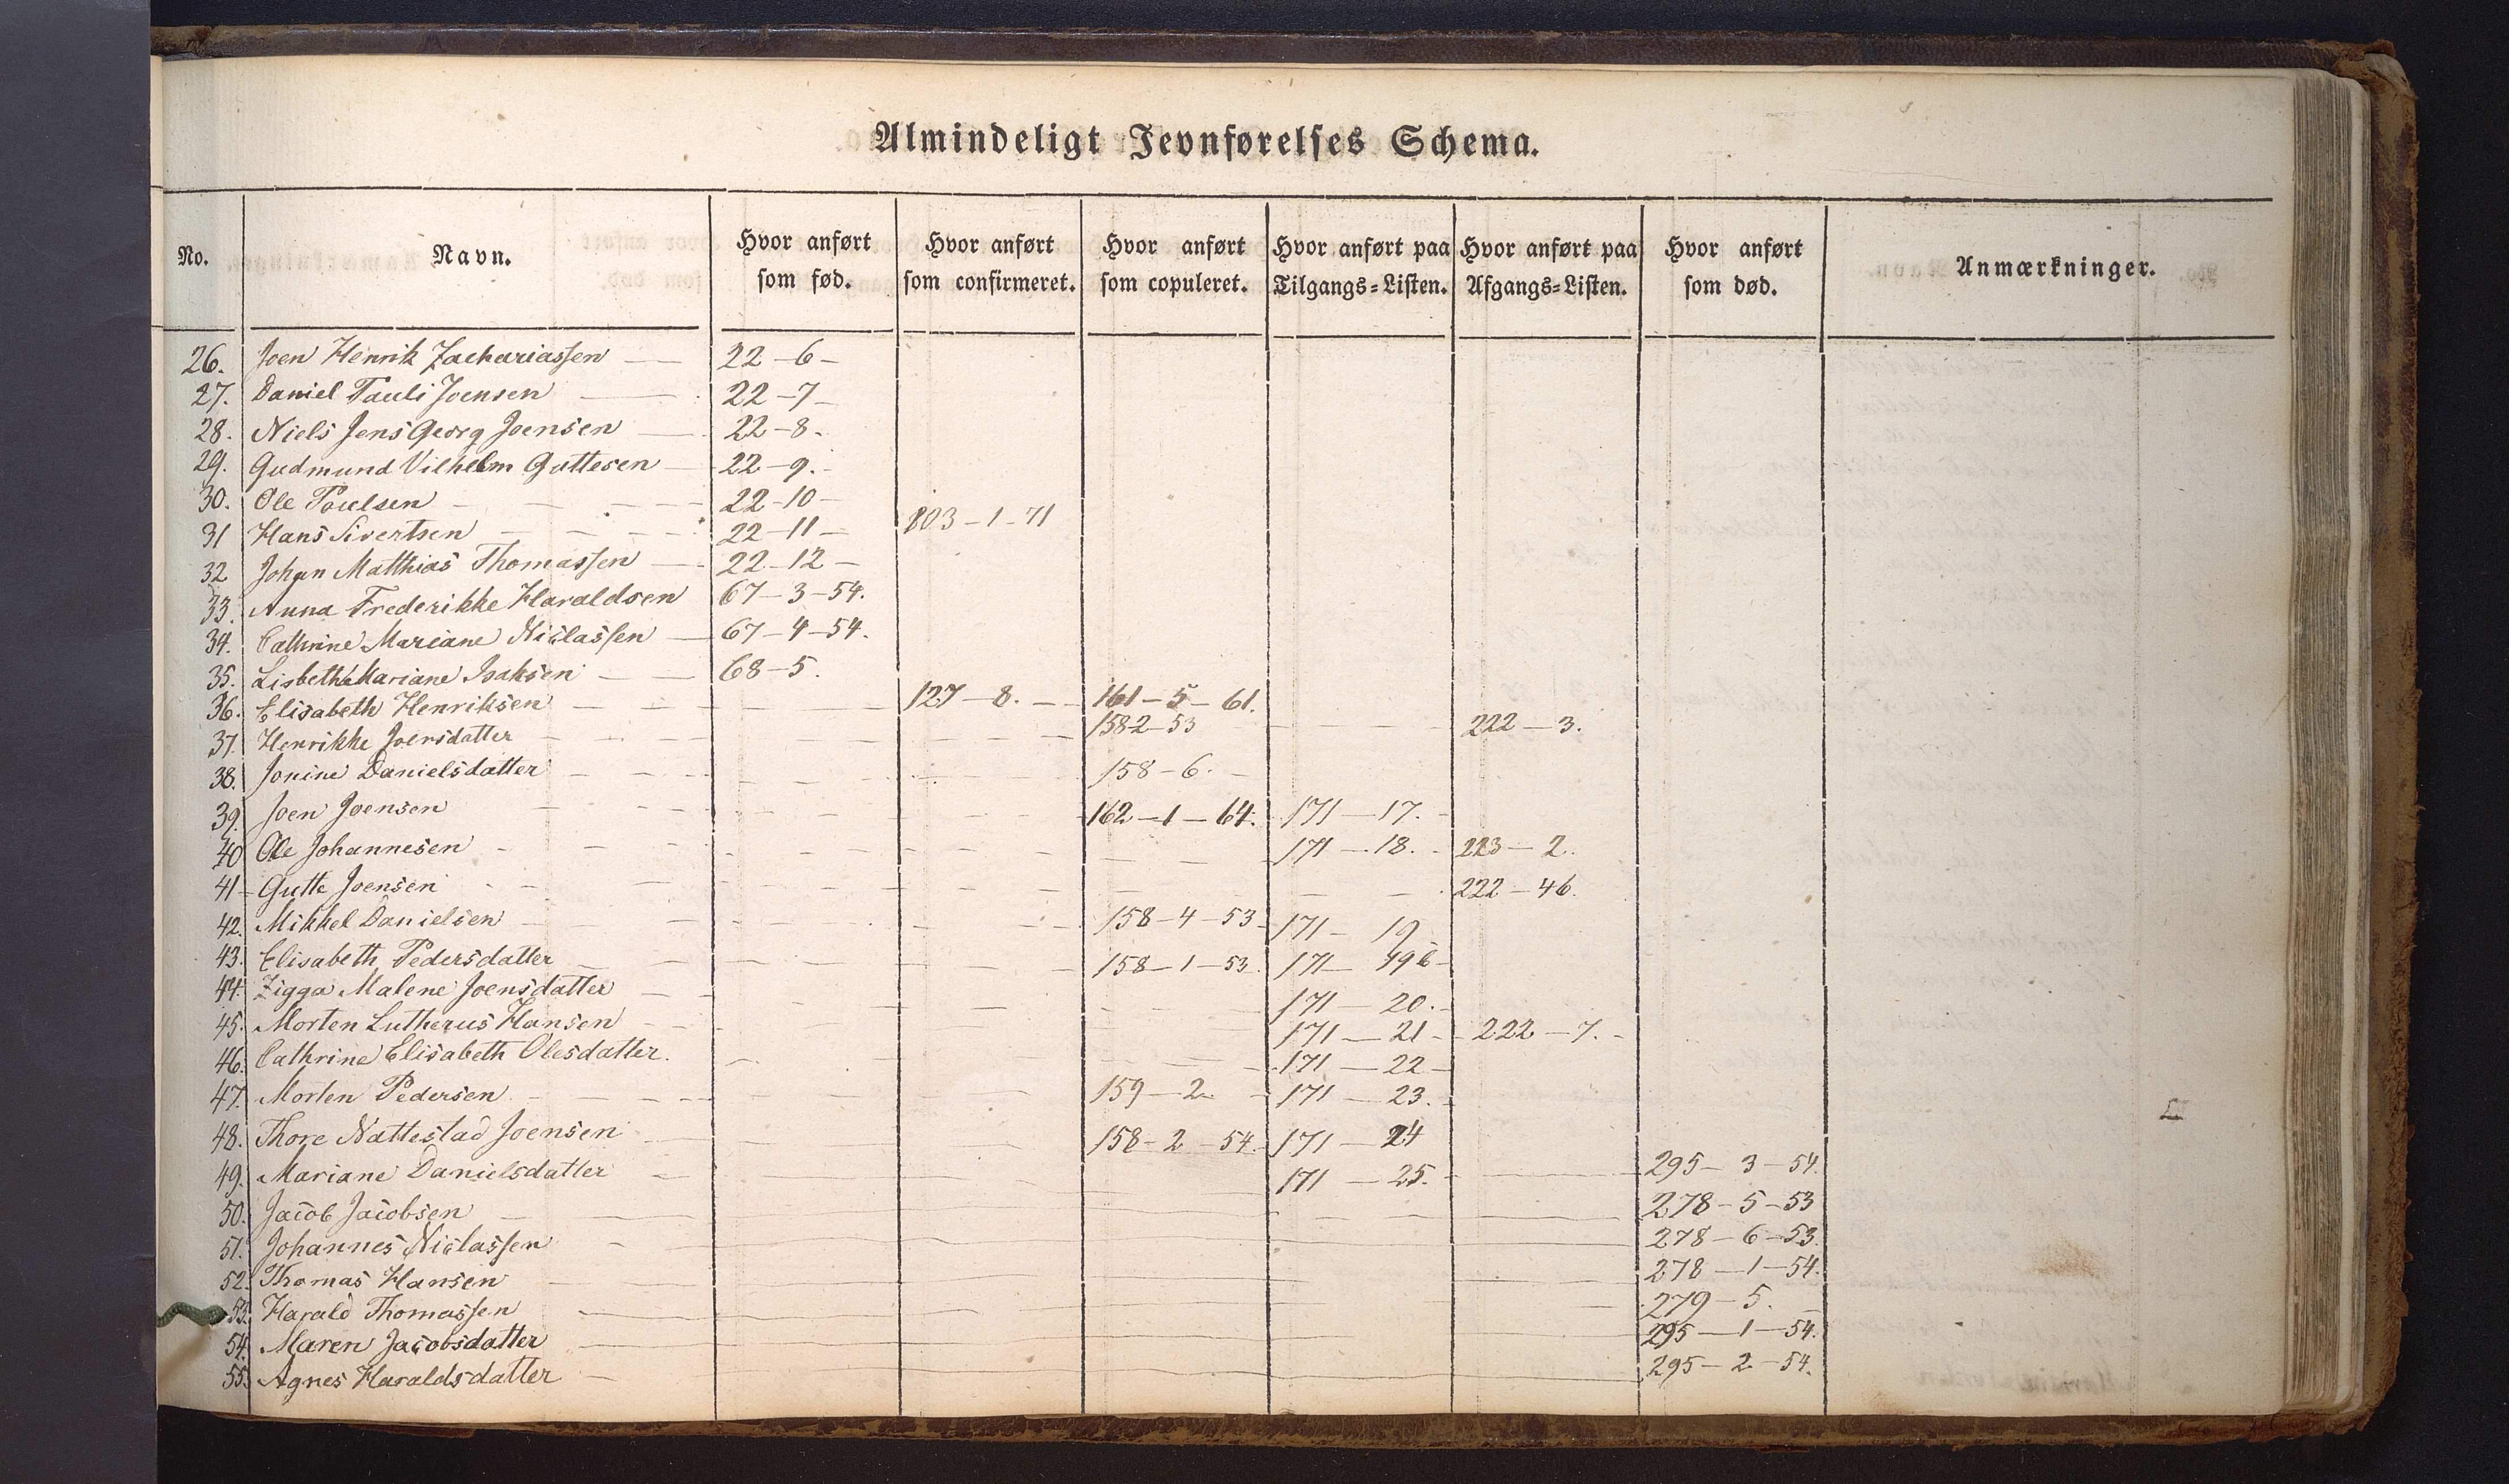 Almindeligt Jevnførelses Schema.
No. Navn. Hvor anført som fød. Hvor anført som confirmeret. Hvor anført som copuleret. Hvor anført paa Tilgangs=Listen. Hvor anført paa Afgangs=Listen. Hvor anført som død. Anmærkninger.
26. Joen Henrik Zachariassen — 22—6—
27. Daniel Pauli Joensen — 22—7—
28. Niels Jens Georg Joensen — 22—8-
29. Gudmund Vilhelm Guttesen — 22—9.-
30. Ole Poulsen — 22-10-
31 Hans Sivertsen — 22—11— 203—1-71
32 Johan Matthias Thomassen — 22-12—
33. Anna Frederikke Haraldsen 67—3—54.
34. Cathrine Mariane Niclassen — 67—4—54.
35. Lisbeth Mariane Isaksen — 68—5.
36. Elisabeth Henriksen — 127—8. — 161—5—61.
37. Henrikke Joensdatter — 158-2-53 — 222—3.
38. Jonine Danielsdatter — 158-6.
39. Joen Joensen — 162—1—64. 171—17.
40 Ole Johannesen — 171—18. 223—2.
41 Gutte Joensen — 222—46.
42. Mikkel Danielsen — 158-4-53 171—19
43. Elisabeth Pedersdatter — 158—1—53. 171—
44. Zigga Malene Joensdatter — 171—20.
45. Morten Lutherus Hansen — 171—21 222—7.
46. Cathrine Elisabeth Olesdatter. — 171—22
47. Morten Pedersen — 159—2 171—23.
48. Thore Nattestad Joensen — 158-2-54. 171—24
49. Mariane Danielsdatter — 171—25. 295—3—54.
50. Jacob Jacobsen — 278-5-53
51. Johannes Niclassen — 278-6-53.
52. Thomas Hansen — 278—1—54.
53. Harald Thomassen — 279-5.
54. Maren Jacobsdatter — 295—1—54.
55. Agnes Haraldsdatter — 295—2—54.